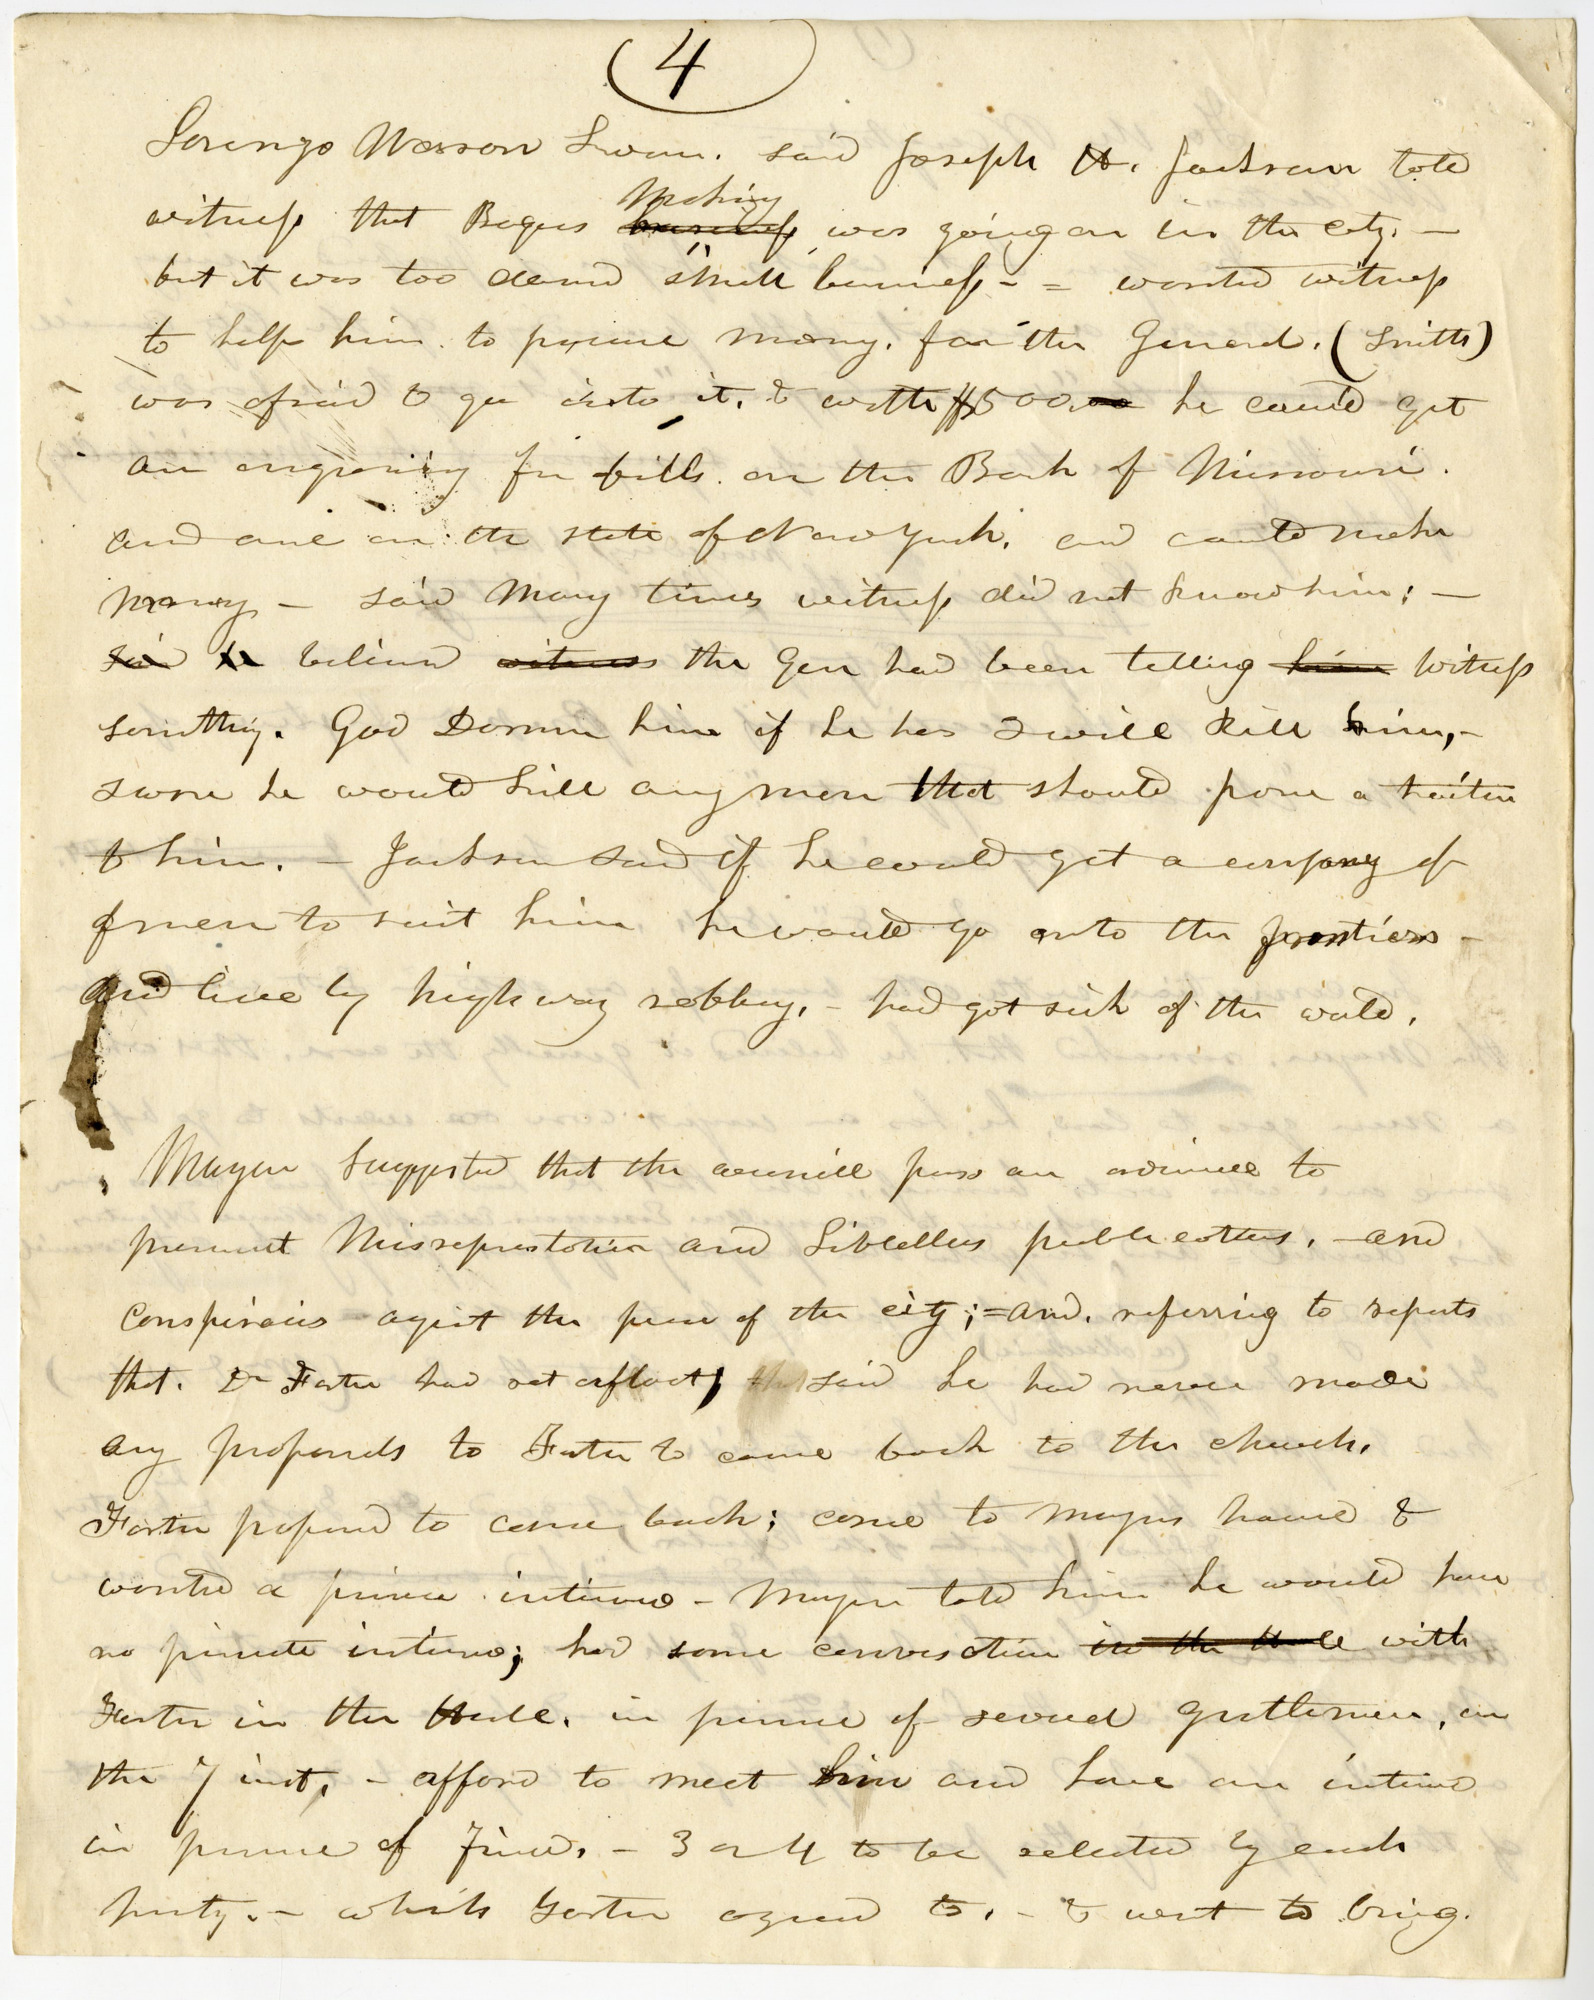 (4)
Lorenzo Wasson Sworn. said Joseph H. Jackson told
witness that Bogus Making business was going on in the city. —
but it was too damd small business - = wanted witness
to help him. to procure money. for the General. (Smith)
was afraid to go into it. & with $500.00 he could get
an engraving for bills. on the Bank of Missouri.
and one on the state of New York. and could make
money — said many times witness did not know him; —
said he believd witness the Gen had been telling him witness
somthing. God Damm him if he has I will kill him, -
swore he would kill any man that should prove a traitor
to him. — Jackson said if he could get a company of
of men to suit him he would go onto the frontiers -
and live by high way robbery, - had got sick of the world.
Mayor Suggested that the council pass an ordinnce to
prevent Misrepresntation and Libellous publications. — and
conspiracies aginst the peace of the city; = and. referring to reports
that. Dr Foster had set afloat; said he had never made
any proposals to Foster to come back to the church.
Foster proposed to come back; come to Mayors house &
wanted a private intervew - Mayor told him he would have
no private intervew; had some conversation in the Hall with
Foster in the Hall. in presence of several gentlemen, on
the 7 inst, - afford to meet him and have an intervew
in presnce of Friends. - 3 or 4 to be selected by each
party. - which Foster agreed to. - & went to bring.